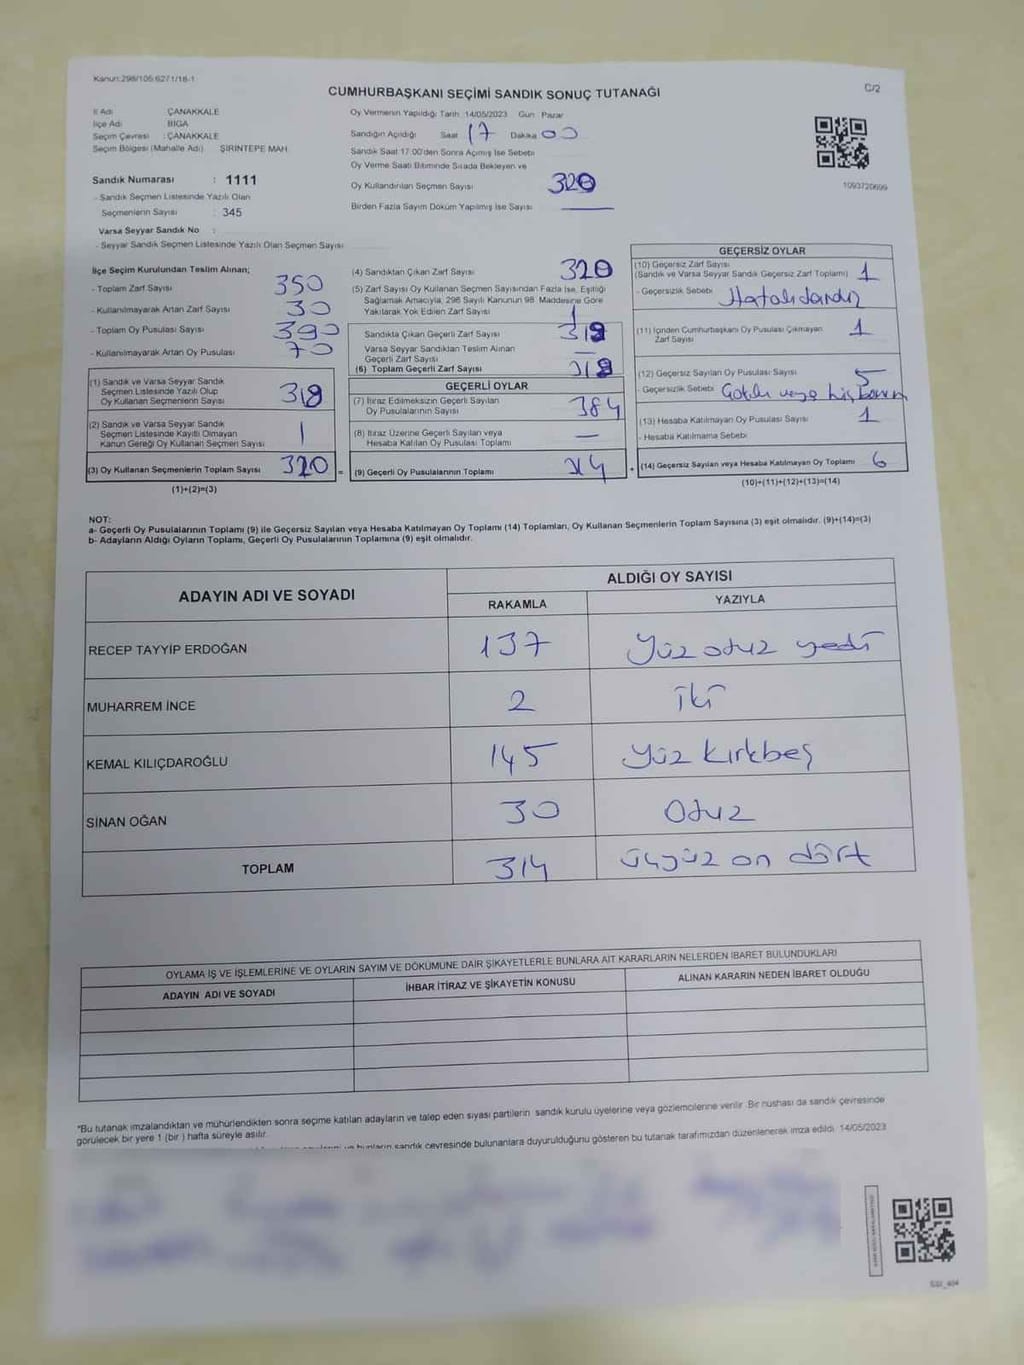 Kanun:298/105;6271/18-1
C/2
CUMHURBAŞKANI SEÇİMİ SANDIK SONUÇ TUTANAĞI
İl Adı ÇANAKKALE
İlçe Adı BİGA
Seçim Çevresi : ÇANAKKALE
Seçim Bölgesi (Mahalle Adı) ŞİRİNTEPE MAH.
Sandık Numarası : 1111
- Sandık Seçmen Listesinde Yazılı Olan
Seçmenlerin Sayısı : 345
Varsa Seyyar Sandık No :
- Seyyar Sandık Seçmen Listesinde Yazılı Olan Seçmen Sayısı
Oy Vermenin Yapıldığı Tarih 14/05/2023 Gün Pazar
Sandığın Açıldığı Saat 17 Dakika 00
Sandık Saat 17:00'den Sonra Açılmış İse Sebebi
Oy Verme Saati Bitiminde Sırada Bekleyen ve
Oy Kullandırılan Seçmen Sayısı 320
Birden Fazla Sayım Döküm Yapılmış İse Sayısı
1093720699
İlçe Seçim Kurulundan Teslim Alınan;
- Toplam Zarf Sayısı 350
- Kullanılmayarak Artan Zarf Sayısı 30
- Toplam Oy Pusulası Sayısı 390
- Kullanılmayarak Artan Oy Pusulası 70
(1) Sandık ve Varsa Seyyar Sandık
Seçmen Listesinde Yazılı Olup
Oy Kullanan Seçmenlerin Sayısı 319
(2) Sandık ve Varsa Seyyar Sandık
Seçmen Listesinde Kayıtlı Olmayan
Kanun Gereği Oy Kullanan Seçmen Sayısı 1
(3) Oy Kullanan Seçmenlerin Toplam Sayısı 320 =
(1)+(2)=(3)
(4) Sandıktan Çıkan Zarf Sayısı 320
(5) Zarf Sayısı Oy Kullanan Seçmen Sayısından Fazla İse, Eşitliği
Sağlamak Amacıyla, 298 Sayılı Kanunun 98. Maddesine Göre
Yakılarak Yok Edilen Zarf Sayısı 1
Sandıkta Çıkan Geçerli Zarf Sayısı 319
Varsa Seyyar Sandıktan Teslim Alınan
Geçerli Zarf Sayısı —
(6) Toplam Geçerli Zarf Sayısı 319
GEÇERLİ OYLAR
(7) İtiraz Edilmeksizin Geçerli Sayılan
Oy Pusulalarının Sayısı
(8) İtiraz Üzerine Geçerli Sayılan veya
Hesaba Katılan Oy Pusulası Toplamı —
(9) Geçerli Oy Pusulalarının Toplamı 314 +
GEÇERSİZ OYLAR
(10) Geçersiz Zarf Sayısı
(Sandık ve Varsa Seyyar Sandık Geçersiz Zarf Toplamı) 1
- Geçersizlik Sebebi
(11) İçinden Cumhurbaşkanı Oy Pusulası Çıkmayan
Zarf Sayısı 1
(12) Geçersiz Sayılan Oy Pusulası Sayısı 5
- Geçersizlik Sebebi
(13) Hesaba Katılmayan Oy Pusulası Sayısı 1
- Hesaba Katılmama Sebebi
(14) Geçersiz Sayılan veya Hesaba Katılmayan Oy Toplamı 6
(10)+(11)+(12)+(13)=(14)
NOT:
a- Geçerli Oy Pusulalarının Toplamı (9) ile Geçersiz Sayılan veya Hesaba Katılmayan Oy Toplamı (14) Toplamları, Oy Kullanan Seçmenlerin Toplam Sayısına (3) eşit olmalıdır. (9)+(14)=(3)
b- Adayların Aldığı Oyların Toplamı, Geçerli Oy Pusulalarının Toplamına (9) eşit olmalıdır.
ADAYIN ADI VE SOYADI
ALDIĞI OY SAYISI
RAKAMLA YAZIYLA
RECEP TAYYİP ERDOĞAN 137 Yüz otuz yedi
MUHARREM İNCE 2 iki
KEMAL KILIÇDAROĞLU 145 Yüz kırkbeş
SİNAN OĞAN 30 Otuz
TOPLAM 314 üçyüz on dört
OYLAMA İŞ VE İŞLEMLERİNE VE OYLARIN SAYIM VE DÖKÜMÜNE DAİR ŞİKAYETLERLE BUNLARA AİT KARARLARIN NELERDEN İBARET BULUNDUKLARI
ADAYIN ADI VE SOYADI İHBAR İTİRAZ VE ŞİKAYETİN KONUSU ALINAN KARARIN NEDEN İBARET OLDUĞU
*Bu tutanak imzalandıktan ve mühürlendikten sonra seçime katılan adayların ve talep eden siyasi partilerin sandık kurulu üyelerine veya gözlemcilerine verilir. Bir nüshası da sandık çevresinde
görülecek bir yere 1 (bir) hafta süreyle asılır.
sandık çevresinde bulunanlara duyurulduğunu gösteren bu tutanak tarafımızdan düzenlenerek imza edildi. 14/05/2023